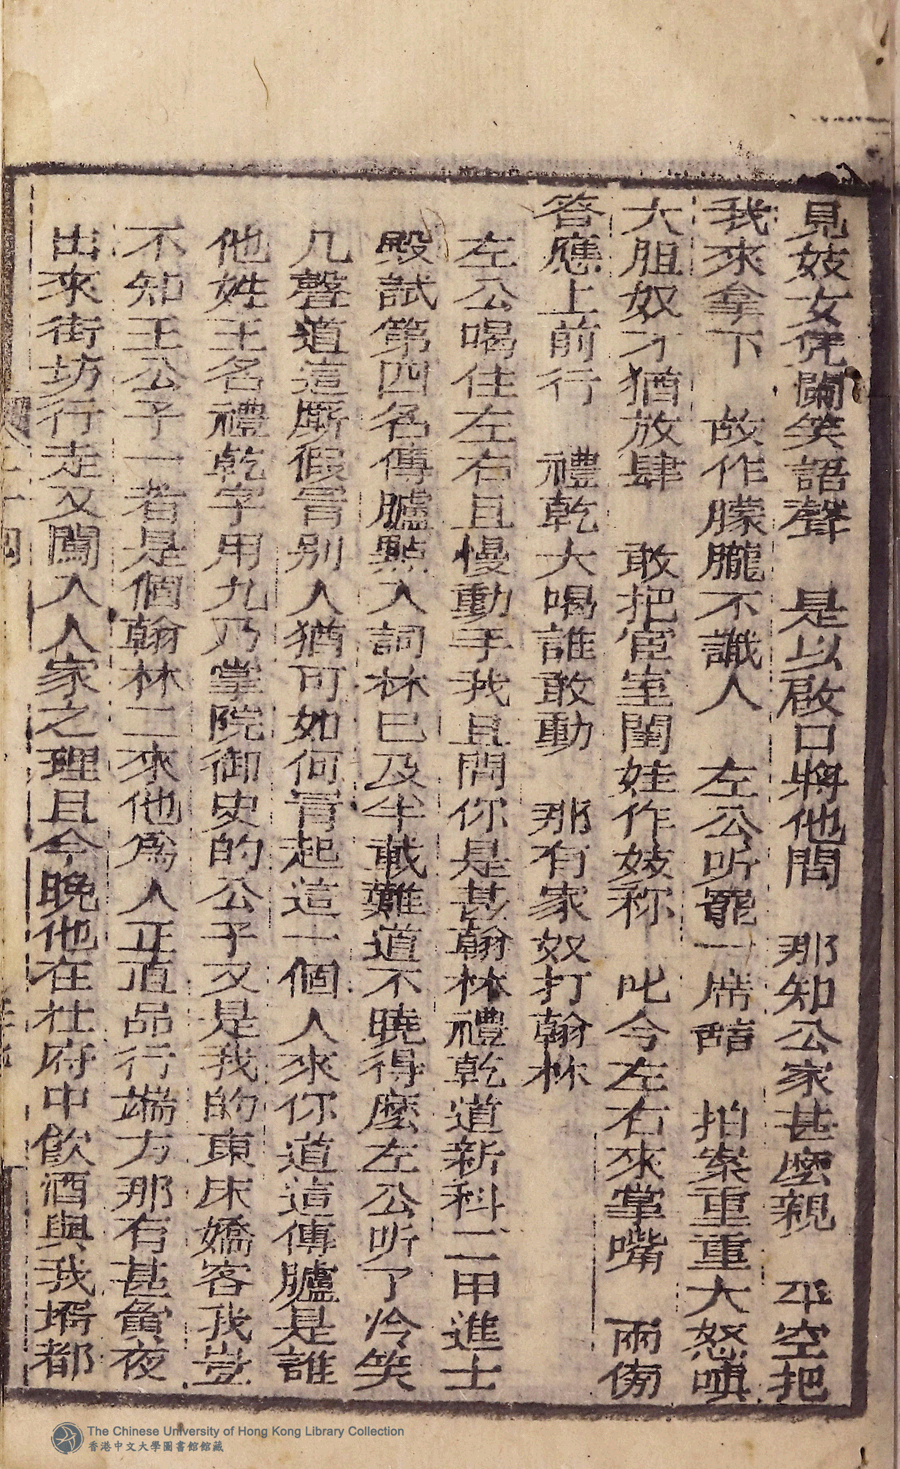 見妓女凭闌笑語聲　是以啟口將他問　那知公家甚麽親　平空把
我來拿下　故作朦朧不識人　左公听罷一席話　拍案重重大怒嗔
大胆奴才猶放肆　敢把宦室閨娃作妓称　叱令左右來掌嘴　兩傍
答應上前行　禮乾大喝誰敢動　那有家奴打翰林
左公喝住左右且慢動手我且問你是甚翰林禮乾道新科二甲進士
殿試第四名傳臚點入詞林已及半載難道不曉得麼左公听了冷笑
几聲道這厮假冐别人猶可如何冐起這一個人來你道這傳臚是誰
他姓王名禮乾字用九乃掌院御史的公子又是我的東床嬌客我豈
不知王公子一者是個翰林二來他爲人正直品行端方那有甚夤夜
出來街坊行走又闖入人家之理且今晚他在杜府中飲酒與我壻都
二十四
The Chinese University of Hong Kong Library Collection
香港中文大學圖書館館藏